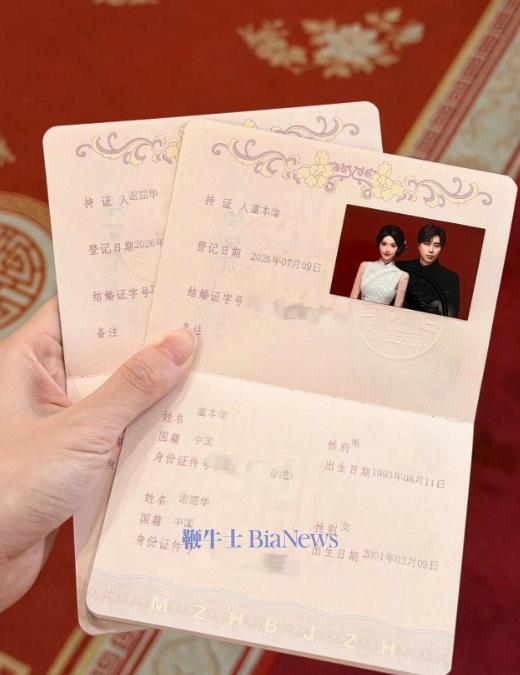 持证人 谢丽华
登记日期 2026年
结婚证字号
备注
持证人 卢本伟
登记日期 2026年07月09日
结婚证字号
备注
姓名 卢本伟
国籍 中国
性别 男
身份证件号 香港)
出生日期 1993年08月11日
姓名 谢丽华
国籍 中国
性别 女
身份证件号
出生日期 2001年03月09日
鞭牛士 BiaNews
MZHBJZH